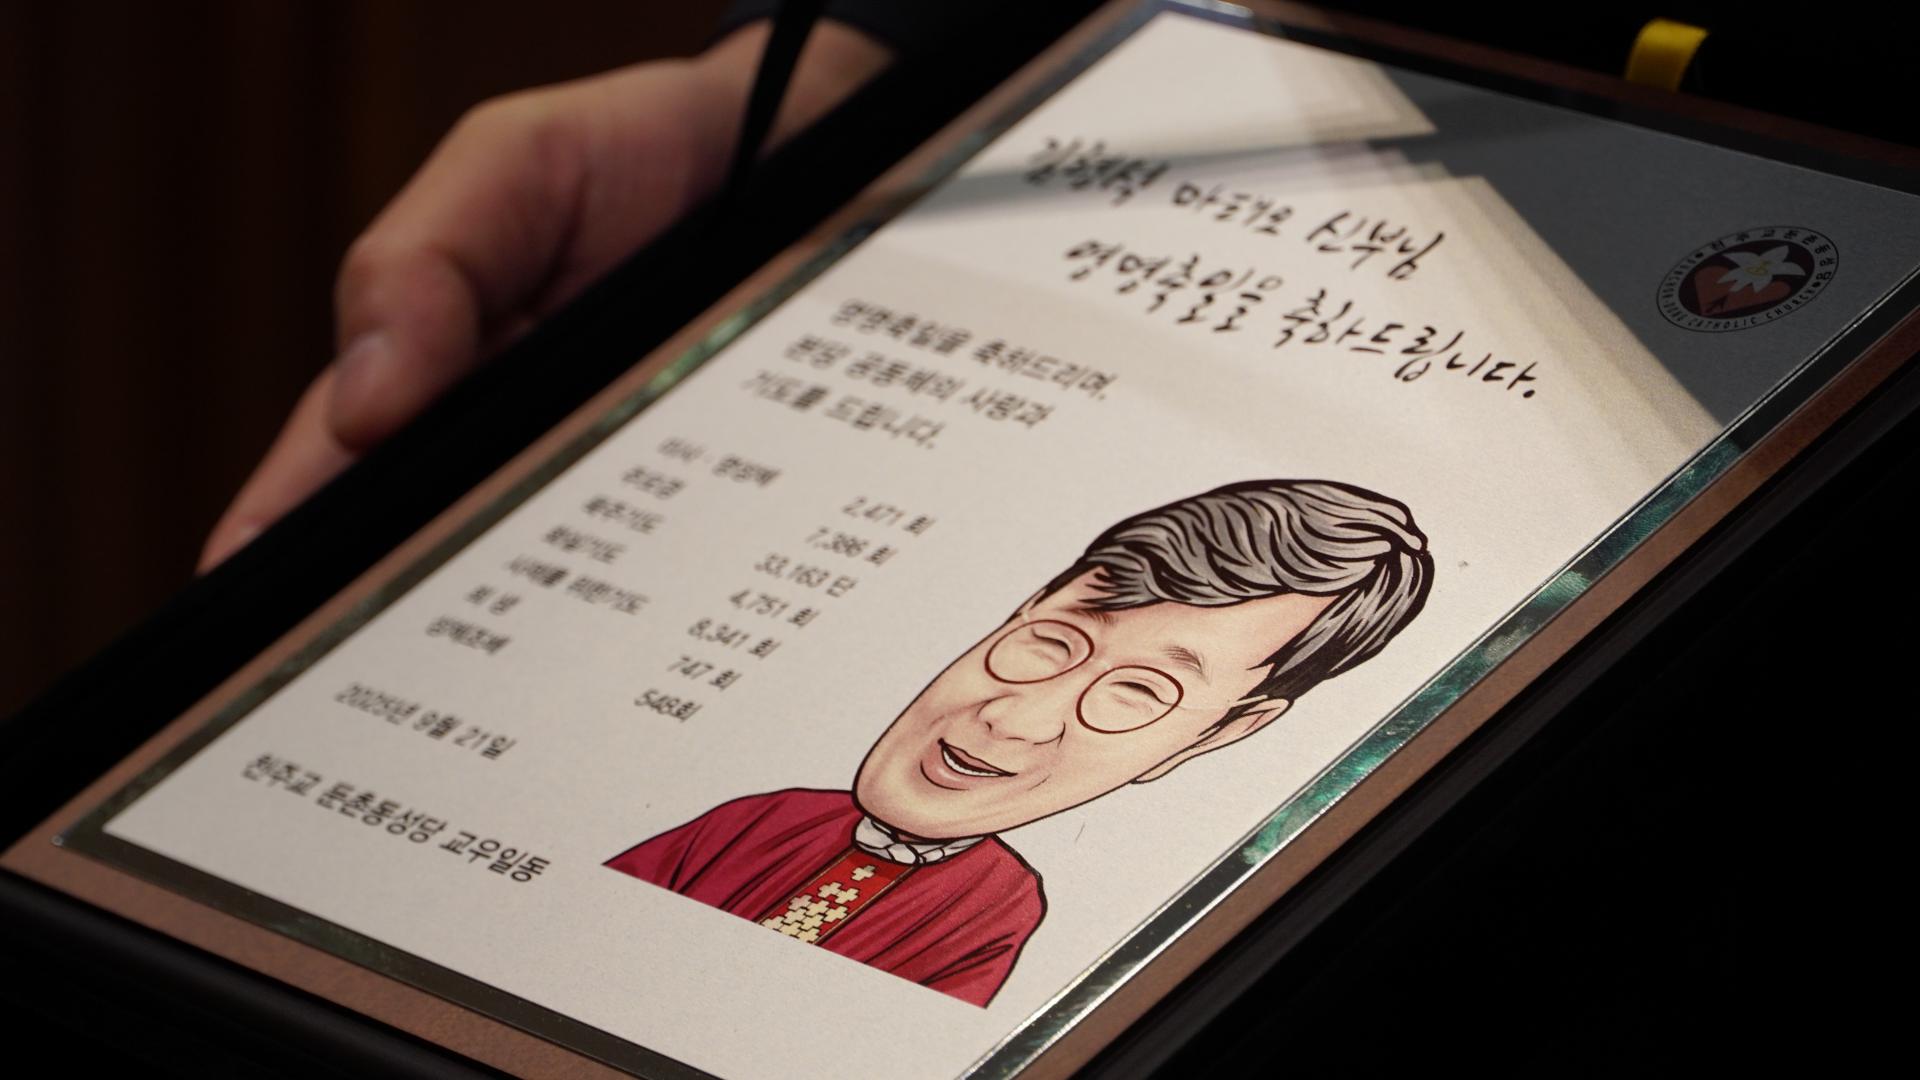 마태오 신부님
영명축일을 축하드립니다.
천주교둔촌동성당
CATHOLIC CHURCH
영명축일을 축하드리며,
본당 공동체의 사랑과
기도를 드립니다.
미사 · 영성체 2,471 회
7,386 회
묵주기도 33,163 단
화살기도 4,751 회
사제를 위한기도 8,341 회
희 생 747 회
성체조배 548회
2025년 9월 21일
천주교 둔촌동성당 교우일동